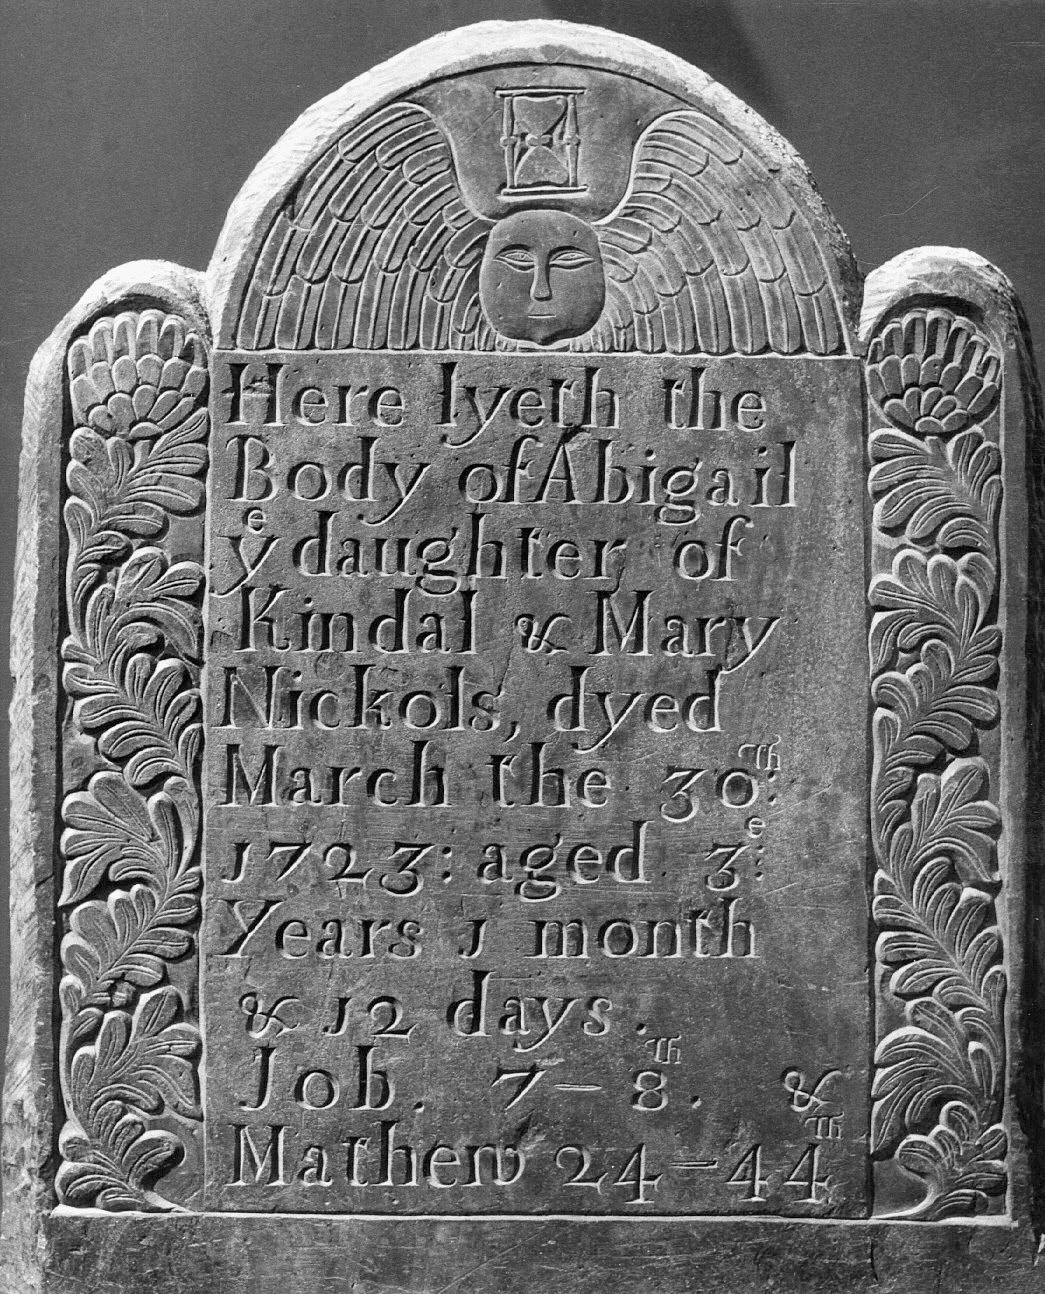 Here lyeth the
Body of Abigail
yᵉ daughter of
Kindal & Mary
Nickols, dyed
March the 30ᵗʰ
1723: aged 3:ᵉ
Years 1 month
& 12 days.
Job. 7–8ᵗʰ. &
Mathew 24–44ᵗʰ